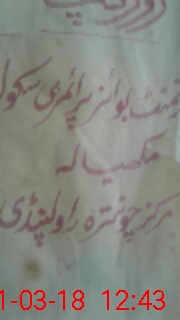 بوائز پرائمری سکول
مکھیالہ
مرکز چونترہ راولپنڈی
1-03-18 12:43